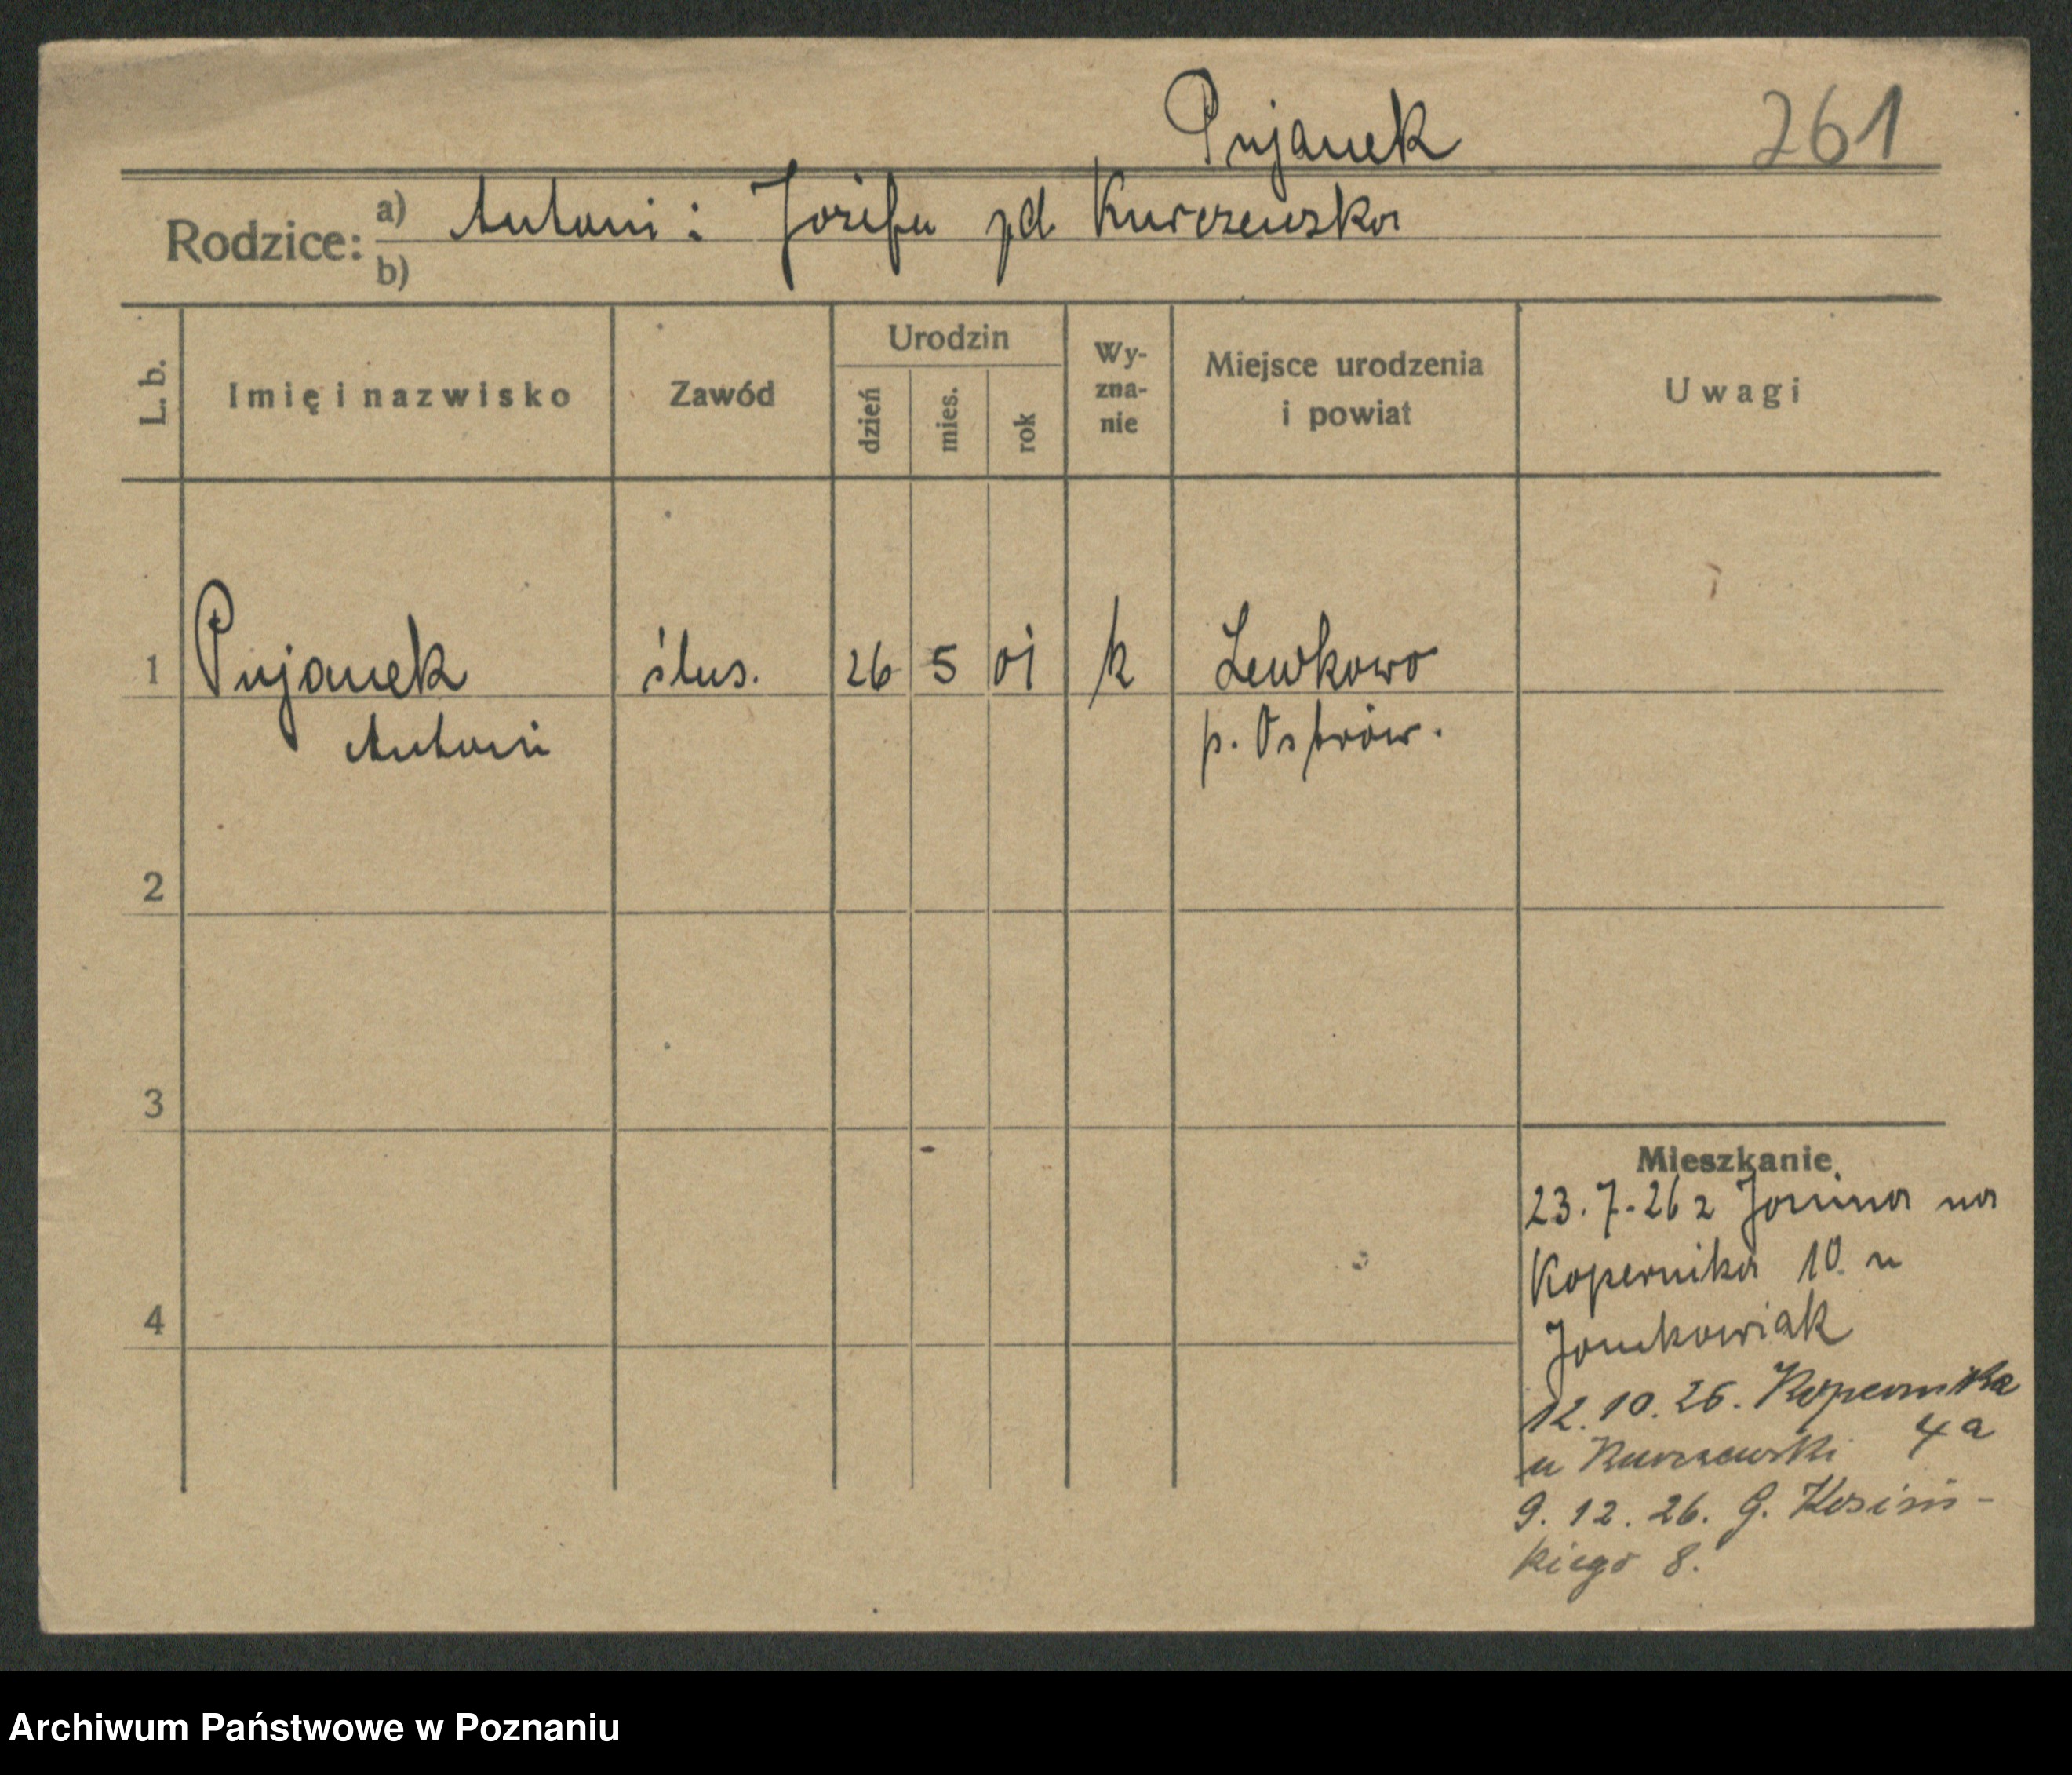 Pujanek 261
Rodzice: a) Antoni i Józefa zd. Kurczewska
b)
L. b. Imię i nazwisko Zawód Urodzin dzień mies. rok Wy-zna-nie Miejsce urodzenia i powiat Uwagi
1 Pujanek ślus. 26 5 01 k Lewkowo
Antoni p. Ostrów.
2
3
Mieszkanie
23.7.26 z na
Kopernika 10 u
4
12.10.26. Kopernika
4a
u Kurczewski
9.12.26. G. Kosiń-
kiego 8.
Archiwum Państwowe w Poznaniu